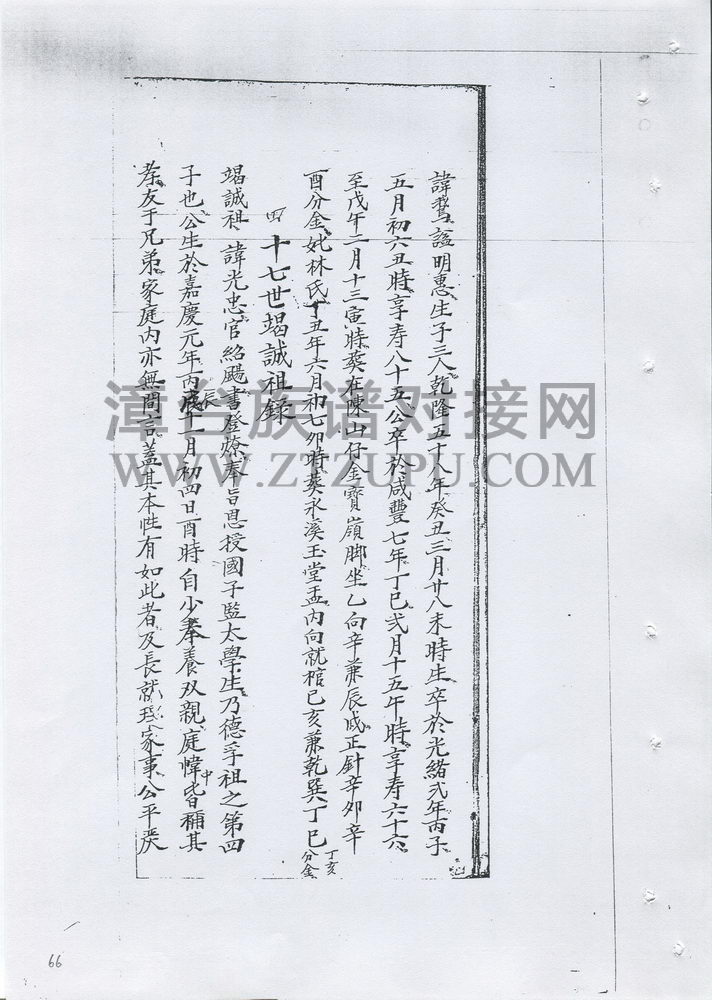 諱鶩諡明惠生子三人乾隆五十八年癸丑三月廿八未時生卒於光緒弍年丙子
五月初六丑時享寿八十五公卒於咸豐七年丁巳弍月十五午時享寿六十六
至戊午二月十三寅時葬在陳山仔金寶嶺脚坐乙向辛兼辰戌正針辛卯辛
酉分金妣林氏丁丑年六月初七卯時葬永溪玉堂盂内向就棺巳亥兼乾巽丁巳
丁亥
分金
四 十七世竭誠祖錄
竭誠祖 諱光忠官紹颺書登燎奉旨恩授國子監太學生乃德孚祖之第四
子也公生於嘉慶元年丙辰十一月初四日酉時自少奉養双親庭幃中皆稱其
孝友于兄弟家庭内亦無間言蓋其本性有如此者及長就理家事公平戻
漳台族谱对接网
WWW.ZTZUPU.COM
66